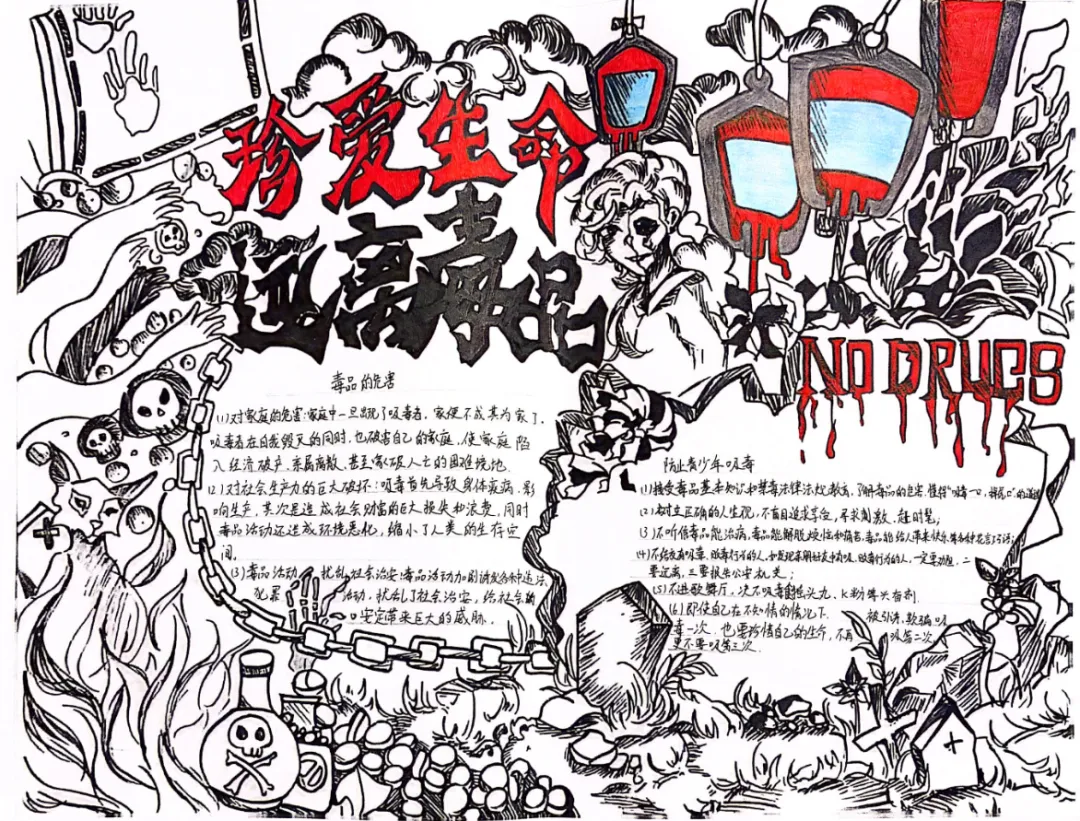 珍爱生命
远离毒品
NO DRUGS
毒品的危害
(1)对家庭的危害:家庭中一旦出现了吸毒者,家便不成其为家了.
吸毒者在自我毁灭的同时,也破害自己的家庭,使家庭陷
入经济破产、亲属离散、甚至家破人亡的困难境地.
(2)对社会生产力的巨大破坏:吸毒首先导致身体疾病,影
响生产,其次是造成社会财富的巨大损失和浪费,同时
毒品活动还造成环境恶化,缩小了人类的生存空
间.
(3)毒品活动扰乱社会治安:毒品活动加剧诱发各种违法
犯罪活动,扰乱了社会治安,给社会
安定带来巨大的威胁.
防止青少年吸毒
(1)接受毒品基本知识和禁毒法律法规教育,了解毒品的危害,懂得"吸毒一口,掉入
(2)树立正确的人生观,不盲目追求享受,寻求刺激,赶时髦;
(3)不听信毒品能治病,毒品能解脱烦恼和痛苦,毒品能给人带来快乐等各种花言巧语;
(4)不结交有吸毒、贩毒行为的人,如发现亲朋好友中有吸、贩毒行为的人,一定要劝阻,二
要远离,三要报告公安机关;
(5)不进歌舞厅,决不吸食摇头丸、K粉等兴奋剂.
(6)即使自己在不知情的情况下,被引诱、欺骗吸
毒一次,也要珍惜自己的生命,不再吸第二次
更不要吸第三次.